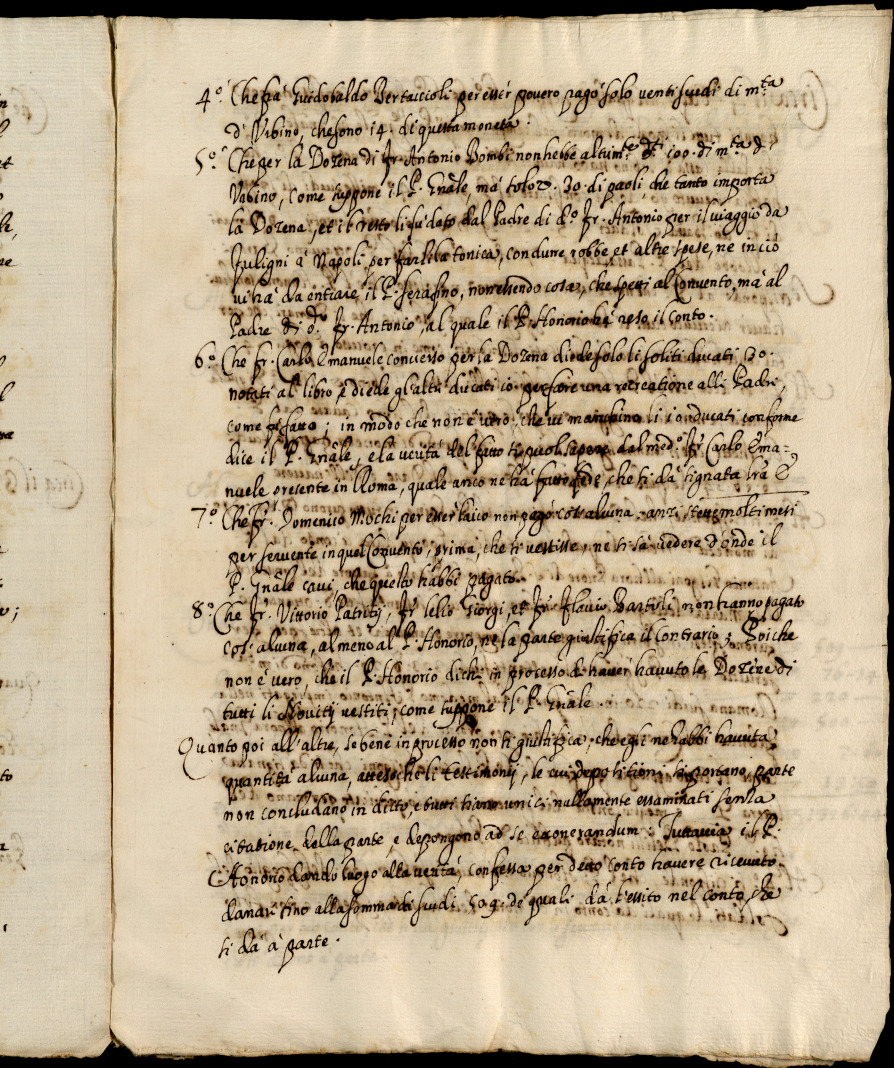 4.º Che frà Guidobaldo Bertaccioli per esser povero pagò solo venti scudi di m.ta
d' Urbino, che sono 14. di questa moneta.
5.º Che per la Dozena di fr. Antonio Bombi non hebbe altrim.te 100. di m.ta d'
Urbino, come suppone il P. Gnãle, mà solo 30. di paoli, che tanto importa
la Dozena, et il resto li fù dato dal Padre di d.º fr. Antonio per il viaggio da
Fuligni à Napoli, per farli la tonica, condurre robbe, et altre spese, ne in ciò
vi hà da entrare il P. Serafino, non essendo cosa, che spetti al Convento, mà al
Padre di d.º fr. Antonio, al quale il P. Honorio hà reso il conto.
6.º Che fr. Carlo Emanuele converso per la Dozena diede solo li soliti ducati 30.
notati al libro, e diede gl'altri ducati 10. per fare una recreatione alli Padri,
come fù fatto; in modo che non è vero, che vi manchino li 10. ducati conforme
dice il P. Gnãle, e la verità del fatto si puol sapere dal med.º fr. Carlo Ema=
nuele presente in Roma, quale anco ne hà fatto fede, che si dà signata lr̃a
7.º Che fr. Domenico Mochi per esser laico non pagò cos' alcuna, anzi stette molti mesi
per servente in quel Convento, prima, che si vestisse, ne si sà vedere d'onde il
P. Gnãle cavi, che questo habbi pagato.
8.º Che fr. Vittorio Patritij, fr. Lelio Giorgi, et fr. Flavio Bartoli non hanno pagato
cos' alcuna, almeno al P. Honorio, ne la parte giustifica il contrario; Poiche
non è vero, che il P. Honorio dich. in processo d' haver havuto le Dozene di
tutti li Novitij vestiti, come suppone il P. Gnãle.
Quanto poi all' altre, se bene in processo non si giustifica, che egli ne habbi havuta
quantità alcuna, atteso che li testimonij, le cui depositioni si portano, parte
non concludano in ditto, e tutti sono unici, nullamente essaminati senza
citatione della parte, e depongono ad se exonerandum: Tuttavia il P.
Honorio dando luogo alla verità, confessa per detto conto havere ricevuto
danari sino alla somma di scudi 509. de quali dà l'essito nel conto, che
si dà à parte.